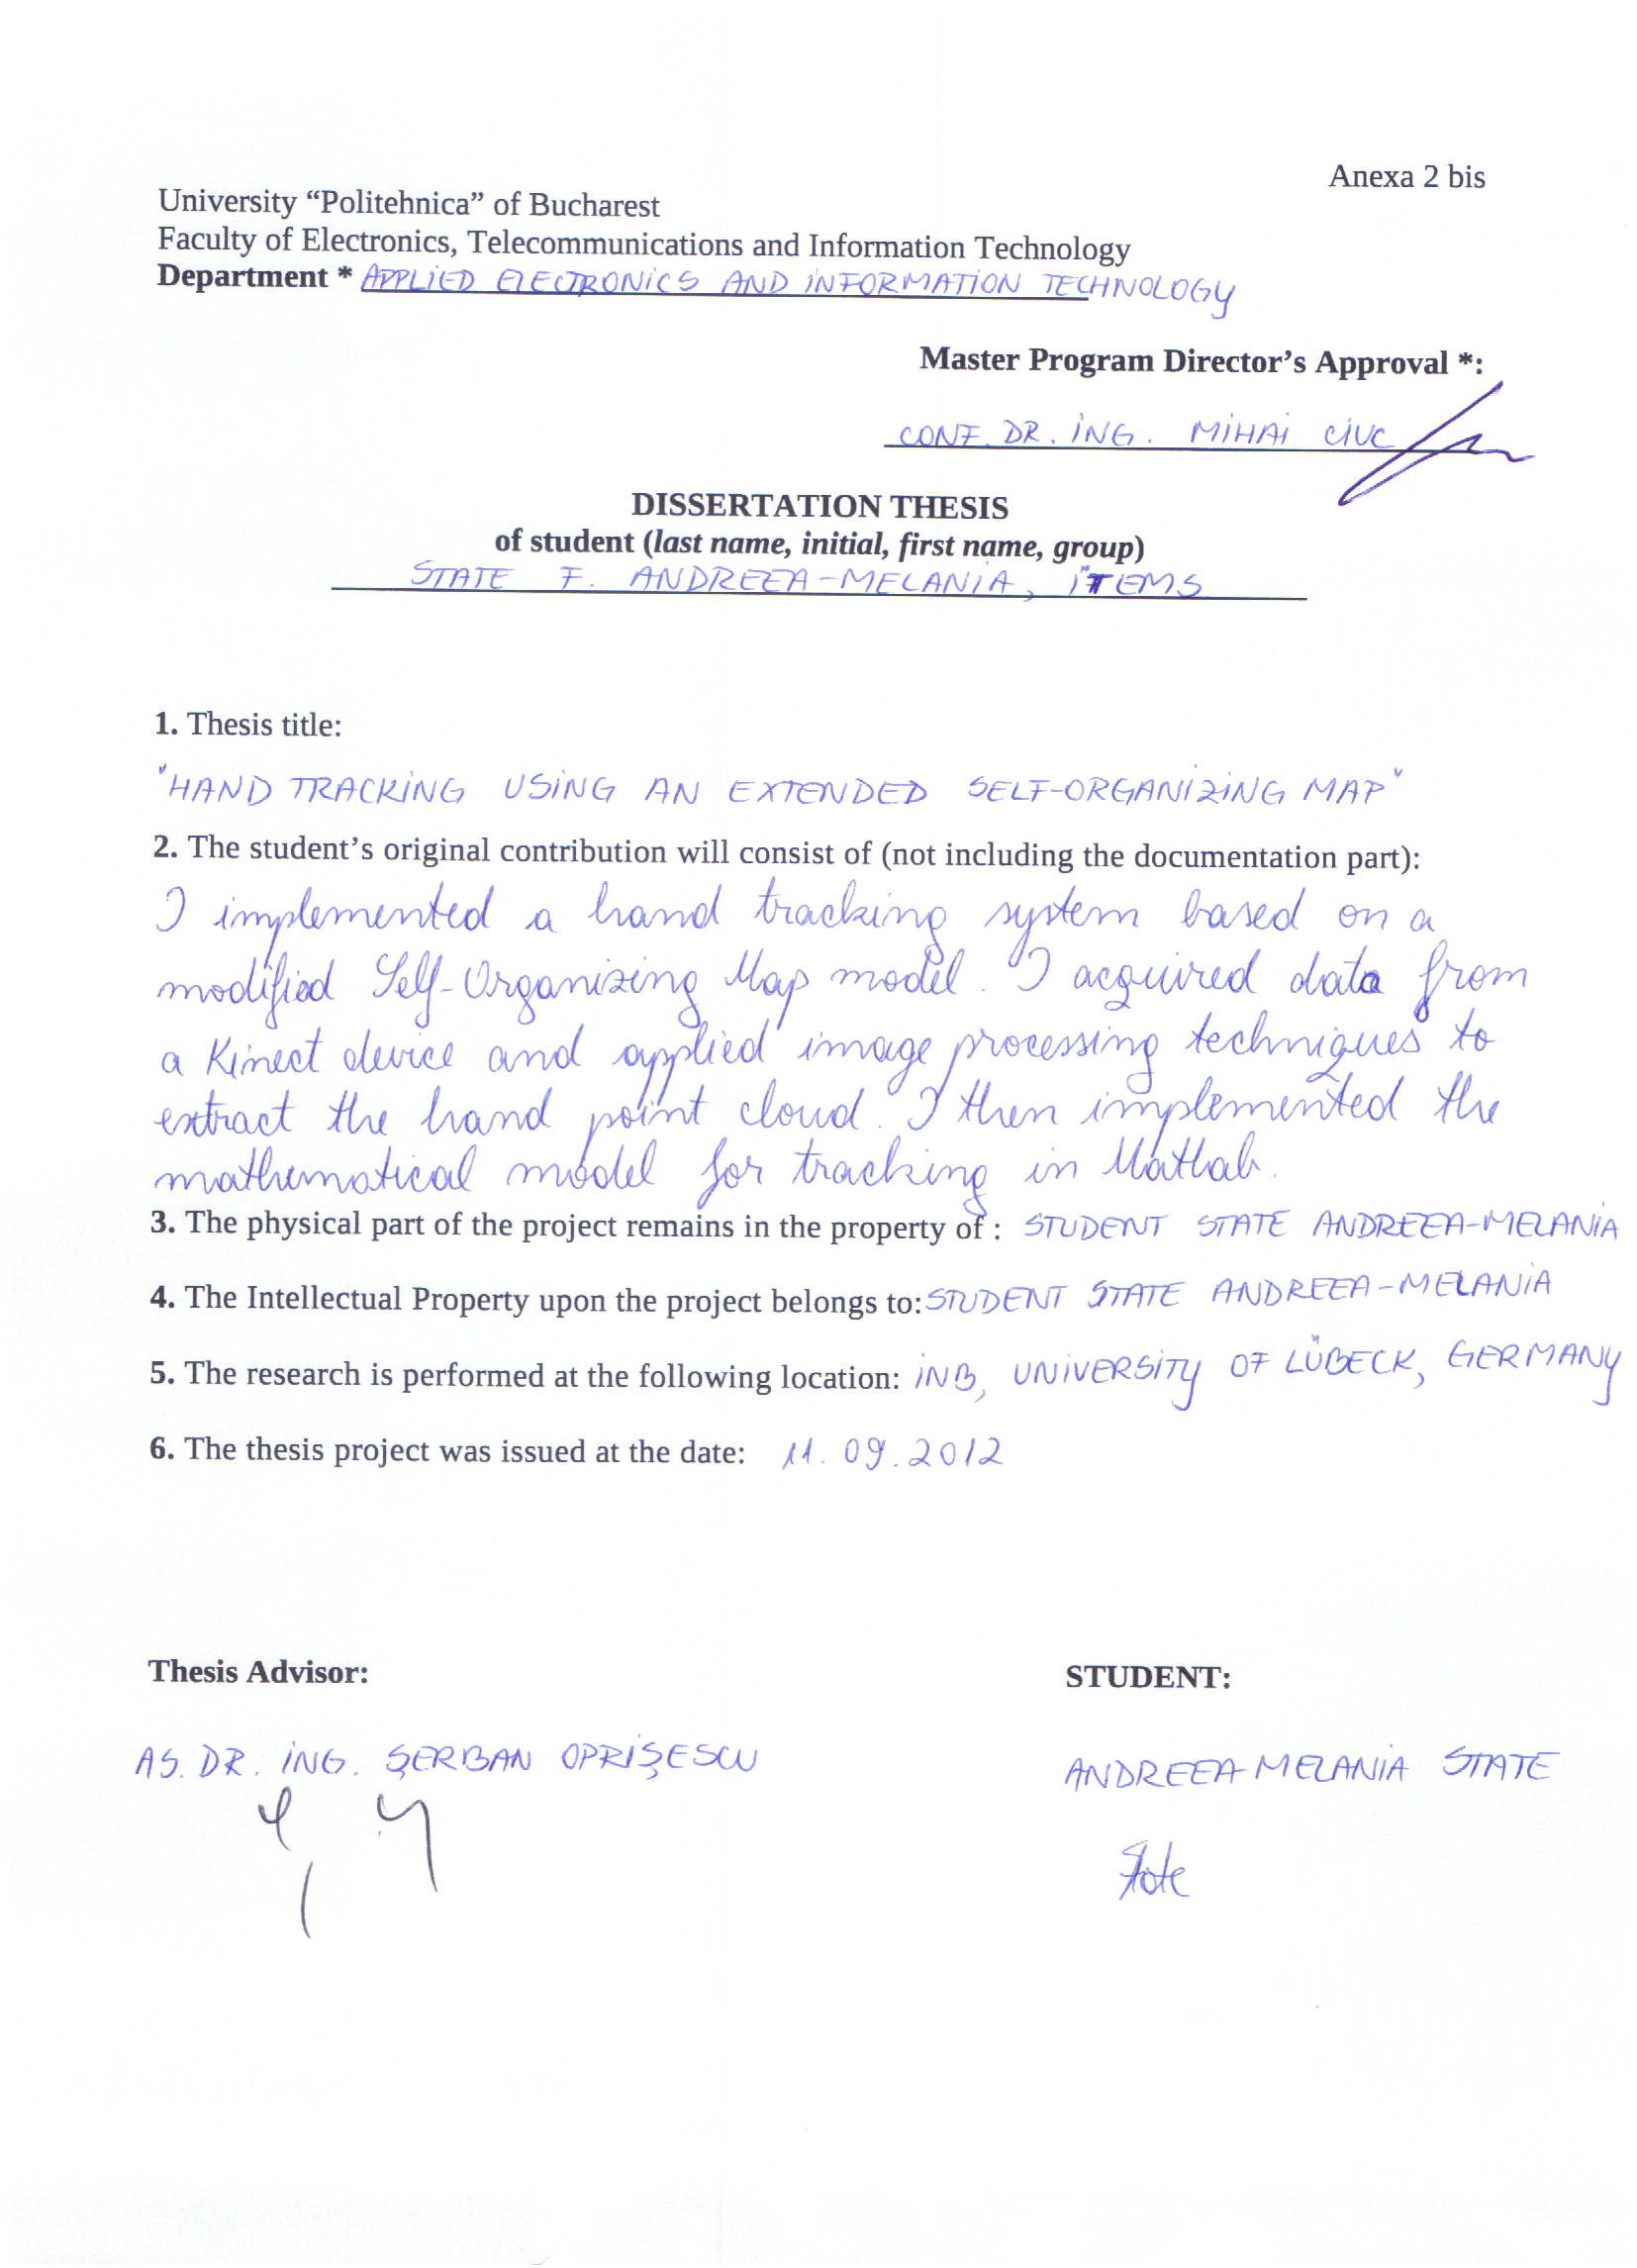 Anexa 2 bis
University “Politehnica” of Bucharest
Faculty of Electronics, Telecommunications and Information Technology
Department * APPLIED ELECTRONICS AND INFORMATION TECHNOLOGY
Master Program Director’s Approval *:
CONF. DR. ING. MIHAI CIUC
DISSERTATION THESIS
of student (last name, initial, first name, group)
STATE F. ANDREEA-MELANIA, ITEMS
1. Thesis title:
"HAND TRACKING USING AN EXTENDED SELF-ORGANIZING MAP"
2. The student’s original contribution will consist of (not including the documentation part):
I implemented a hand tracking system based on a
modified Self-Organizing Map model. I acquired data from
a Kinect device and applied image processing techniques to
extract the hand point cloud. I then implemented the
mathematical model for tracking in Matlab.
3. The physical part of the project remains in the property of : STUDENT STATE ANDREEA-MELANIA
4. The Intellectual Property upon the project belongs to: STUDENT STATE ANDREEA-MELANIA
5. The research is performed at the following location: INB, UNIVERSITY OF LÜBECK, GERMANY
6. The thesis project was issued at the date: 11.09.2012
Thesis Advisor: STUDENT:
AS. DR. ING. ŞERBAN OPRIŞESCU ANDREEA-MELANIA STATE
State